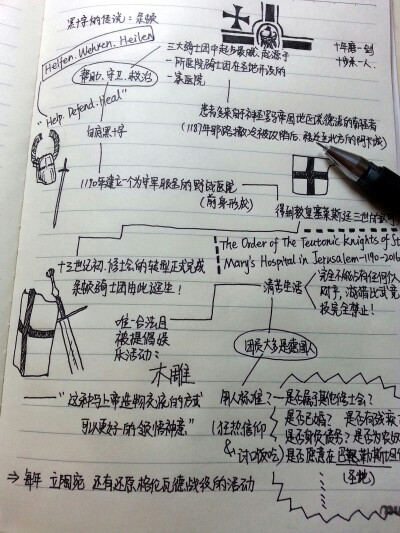 黑十字的传说：条顿
Helfen, Wehren, Heilen
帮助、守卫、救治
"Help. Defend. Heal"
白肩黑十字
三大骑士团中起步最晚，起源于
一所医院骑士团在圣地开设的
一家医院
十年磨一剑
十步杀一人。
患者多来自神圣罗马帝国地区说德语的朝圣者
(1187年耶路撒冷被攻陷后，移近至北方的阿卡城)
1190年建立一个为守军服务的野战医院
(前身形成)
得到教皇塞莱斯廷三世的
The Order of The Teutonic Knights of St
Mary's Hospital in Jerusalem-1190-2016
十三世纪初，修士会的转型正式完成
条顿骑士团由此诞生！
清苦生活
完全不能占有任何
财产，游猎比武竞
技完全禁止！
唯一合法且
被提倡娱
乐活动：
木雕
团长大多是德国人
"这种与上帝造物交流的方式
可以更好的领悟神意"
用人标准？
(狂热信仰
&
讨口饭吃)
是否属于其他修士会？
是否已婚？ 是否有残疾
是否身负债务？是否为农奴
是否愿意在巴勒斯坦
(圣地)
⇒ 每年 立陶宛 还有还原格伦瓦德战役的活动